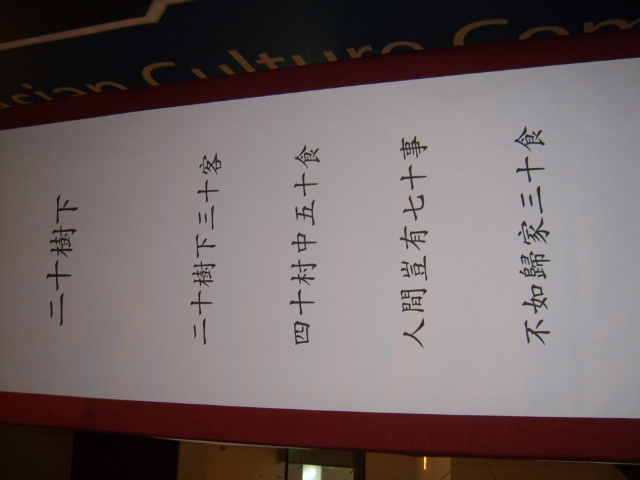 sian Culture Com
二十樹下
二十樹下三十客
四十村中五十食
人間豈有七十事
不如歸家三十食